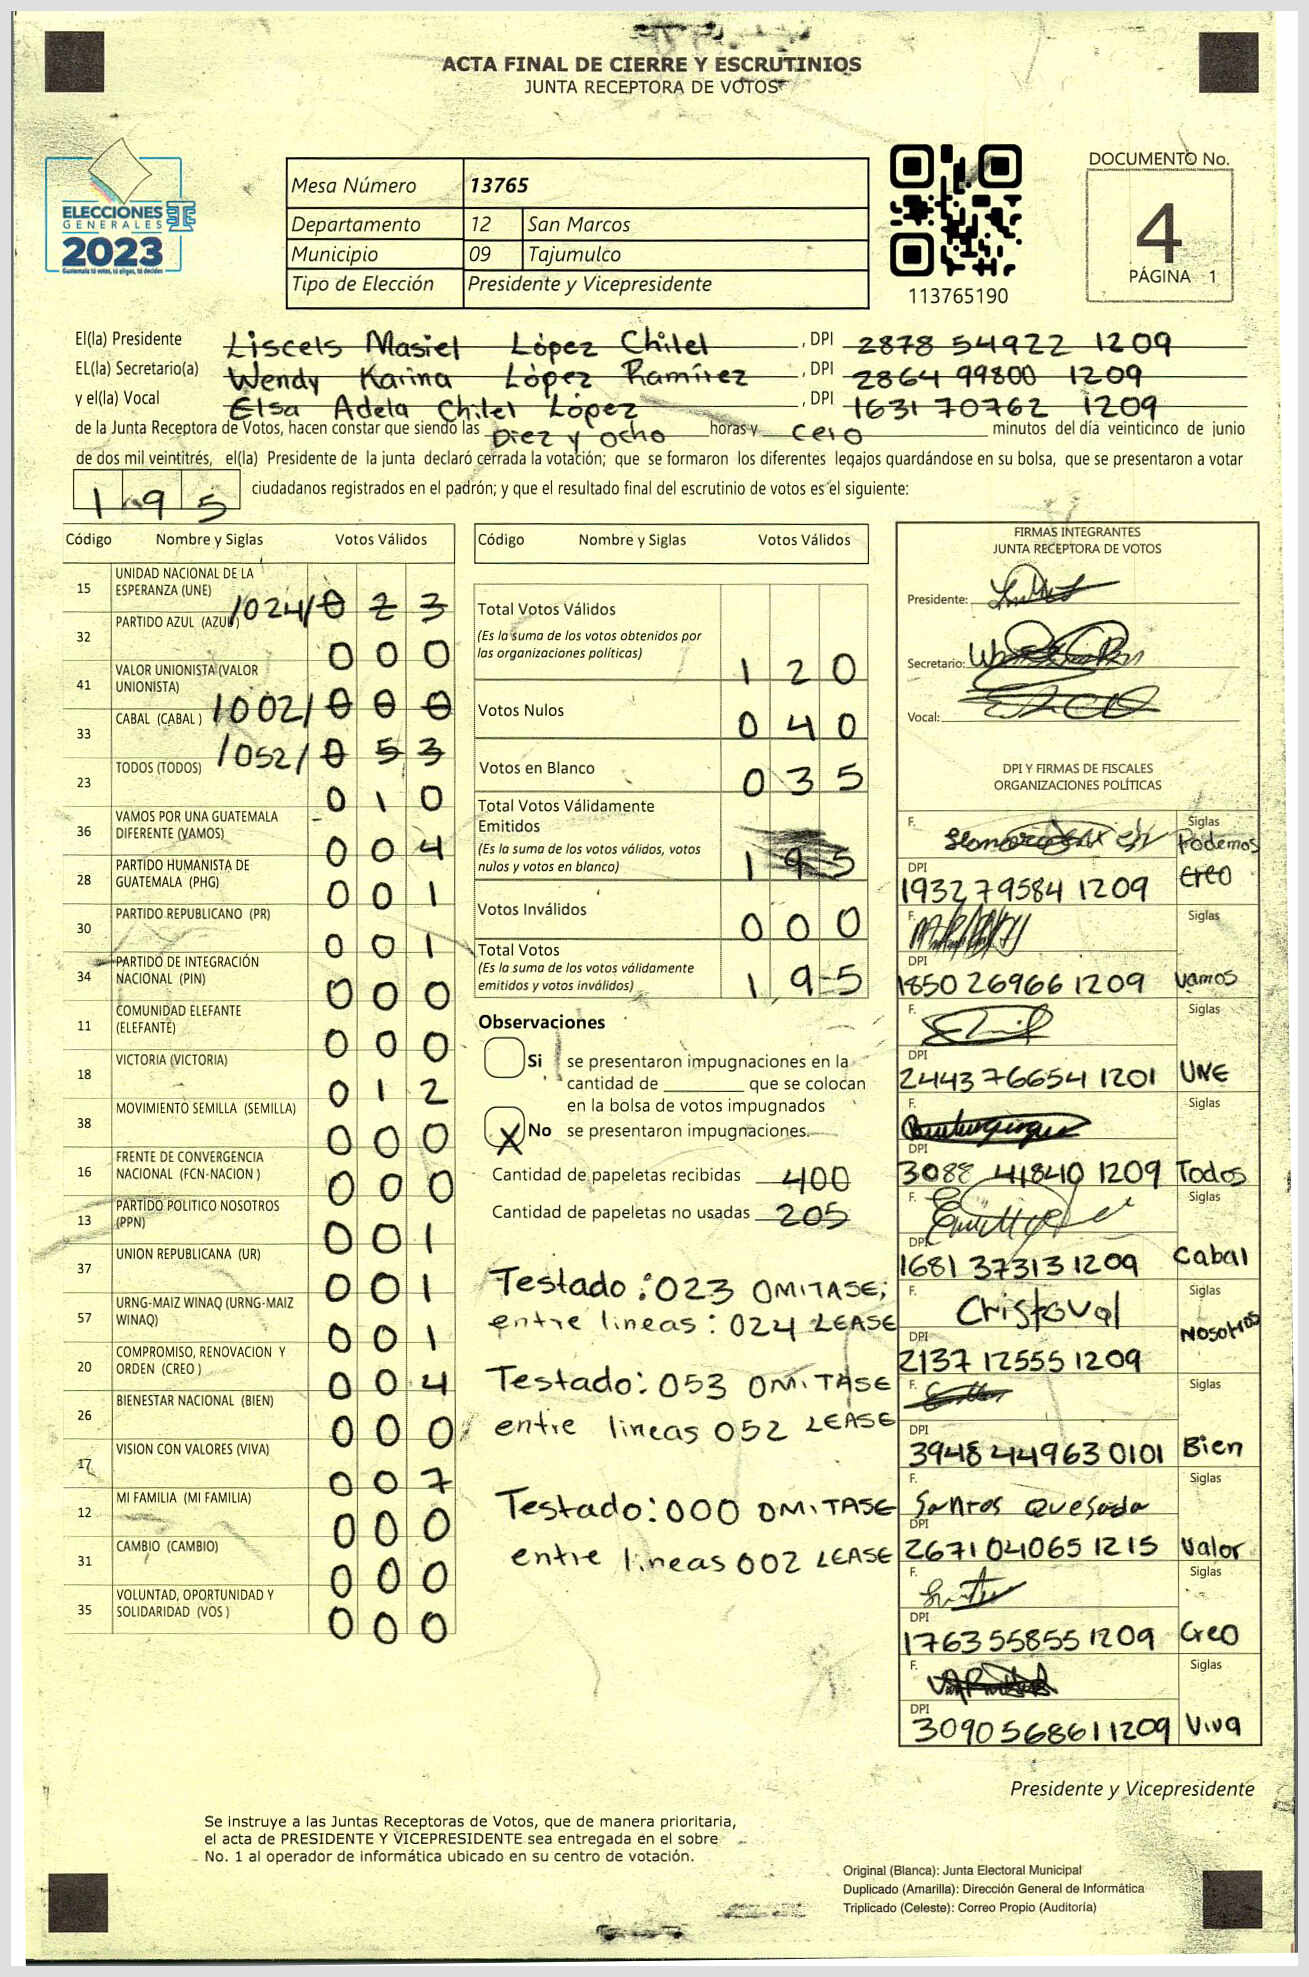 ACTA FINAL DE CIERRE Y ESCRUTINIOS
JUNTA RECEPTORA DE VOTOS
ELECCIONES
GENERALES
2023
Guatemala tú votas, tú eliges, tú decides
Mesa Número 13765
Departamento 12 San Marcos
Municipio 09 Tajumulco
Tipo de Elección Presidente y Vicepresidente
113765190
DOCUMENTO No.
4
PÁGINA 1
El(la) Presidente Liscels Masiel López Chilel , DPI 2878 54922 1209
EL(la) Secretario(a) Wendy Karina López Ramírez , DPI 2864 99800 1209
y el(la) Vocal Elsa Adela Chilel López , DPI 1631 70762 1209
de la Junta Receptora de Votos, hacen constar que siendo las Diez y ocho horas y cero minutos del día veinticinco de junio
de dos mil veintitrés, el(la) Presidente de la junta declaró cerrada la votación; que se formaron los diferentes legajos guardándose en su bolsa, que se presentaron a votar
195 ciudadanos registrados en el padrón; y que el resultado final del escrutinio de votos es el siguiente:
Código Nombre y Siglas Votos Válidos
15 UNIDAD NACIONAL DE LA ESPERANZA (UNE) /024/ 0 2 3
32 PARTIDO AZUL (AZUL) 0 0 0
41 VALOR UNIONISTA (VALOR UNIONISTA) /002/ 0 0 0
33 CABAL (CABAL ) /052/ 0 5 3
23 TODOS (TODOS) 0 1 0
36 VAMOS POR UNA GUATEMALA DIFERENTE (VAMOS) 0 0 4
28 PARTIDO HUMANISTA DE GUATEMALA (PHG) 0 0 1
30 PARTIDO REPUBLICANO (PR) 0 0 1
34 PARTIDO DE INTEGRACIÓN NACIONAL (PIN) 0 0 0
11 COMUNIDAD ELEFANTE (ELEFANTE) 0 0 0
18 VICTORIA (VICTORIA) 0 1 2
38 MOVIMIENTO SEMILLA (SEMILLA) 0 0 0
16 FRENTE DE CONVERGENCIA NACIONAL (FCN-NACION ) 0 0 0
13 PARTIDO POLITICO NOSOTROS (PPN) 0 0 1
37 UNION REPUBLICANA (UR) 0 0 1
57 URNG-MAIZ WINAQ (URNG-MAIZ WINAQ) 0 0 1
20 COMPROMISO, RENOVACION Y ORDEN (CREO ) 0 0 4
26 BIENESTAR NACIONAL (BIEN) 0 0 0
17 VISION CON VALORES (VIVA) 0 0 7
12 MI FAMILIA (MI FAMILIA) 0 0 0
31 CAMBIO (CAMBIO) 0 0 0
35 VOLUNTAD, OPORTUNIDAD Y SOLIDARIDAD (VOS ) 0 0 0
Código Nombre y Siglas Votos Válidos
Total Votos Válidos
(Es la suma de los votos obtenidos por
las organizaciones políticas) 1 2 0
Votos Nulos 0 4 0
Votos en Blanco 0 3 5
Total Votos Válidamente
Emitidos
(Es la suma de los votos válidos, votos
nulos y votos en blanco) 1 9 5
Votos Inválidos 0 0 0
Total Votos
(Es la suma de los votos válidamente
emitidos y votos inválidos) 1 9 5
Observaciones
Si se presentaron impugnaciones en la
cantidad de que se colocan
en la bolsa de votos impugnados
X No se presentaron impugnaciones.
Cantidad de papeletas recibidas 400
Cantidad de papeletas no usadas 205
Testado: 023 OMITASE;
entre lineas: 024 LEASE
Testado: 053 OMITASE
entre lineas 052 LEASE
Testado: 000 OMITASE
entre lineas 002 LEASE
FIRMAS INTEGRANTES
JUNTA RECEPTORA DE VOTOS
Presidente:
Secretario:
Vocal:
DPI Y FIRMAS DE FISCALES
ORGANIZACIONES POLÍTICAS
F. Siglas
Podemos
Creo
DPI
1932 79584 1209
F. Siglas
DPI
1850 26966 1209 Vamos
F. Siglas
DPI
2443 76654 1201 UNE
F. Siglas
DPI
3088 41840 1209 Todos
F. Siglas
DPI
1681 37313 1209 Cabal
F. Cristoval Siglas
Nosotros
DPI
2137 12555 1209
F. Siglas
DPI
3948 44963 0101 Bien
F. Santos Quesada Siglas
DPI
2671 04065 1215 Valor
F. Siglas
DPI
1763 55855 1209 Creo
F. Siglas
DPI
3090 56861 1209 Viva
Presidente y Vicepresidente
Se instruye a las Juntas Receptoras de Votos, que de manera prioritaria,
el acta de PRESIDENTE Y VICEPRESIDENTE sea entregada en el sobre
No. 1 al operador de informática ubicado en su centro de votación.
Original (Blanca): Junta Electoral Municipal
Duplicado (Amarilla): Dirección General de Informática
Triplicado (Celeste): Correo Propio (Auditoría)